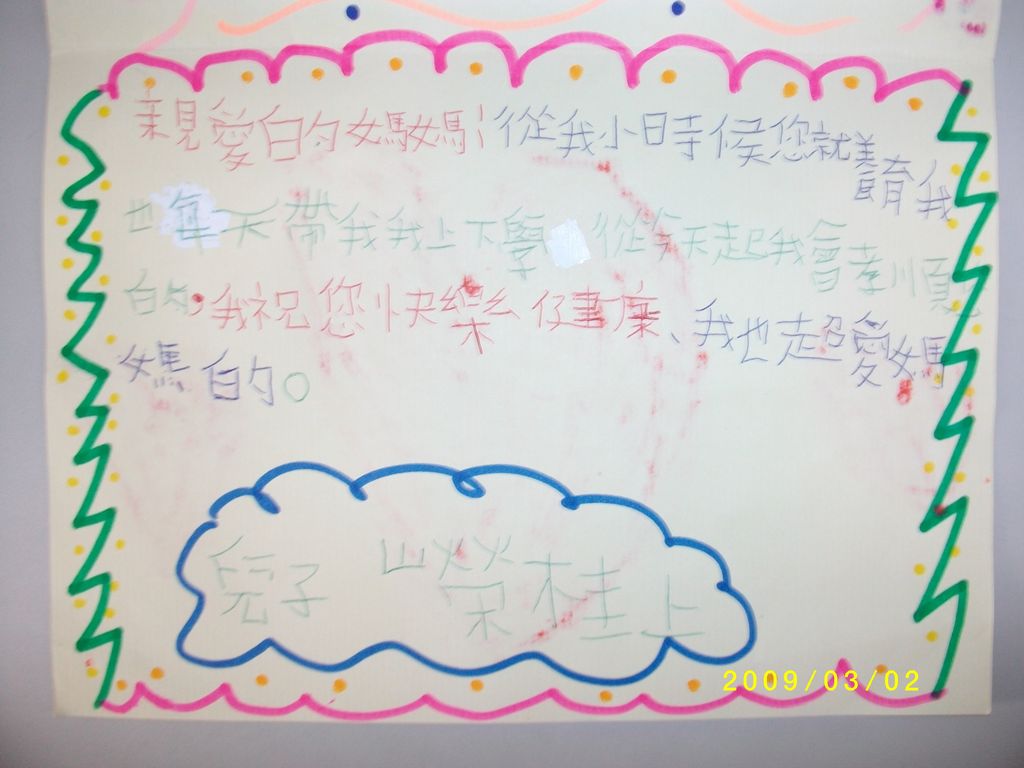 親愛的媽媽:從我小時候您就養育我
也每天帶我我上下學 從今天起我會孝順
的,我祝您快樂 健康、我也超愛媽
媽的。
兒子 山榮桂上
2009/03/02